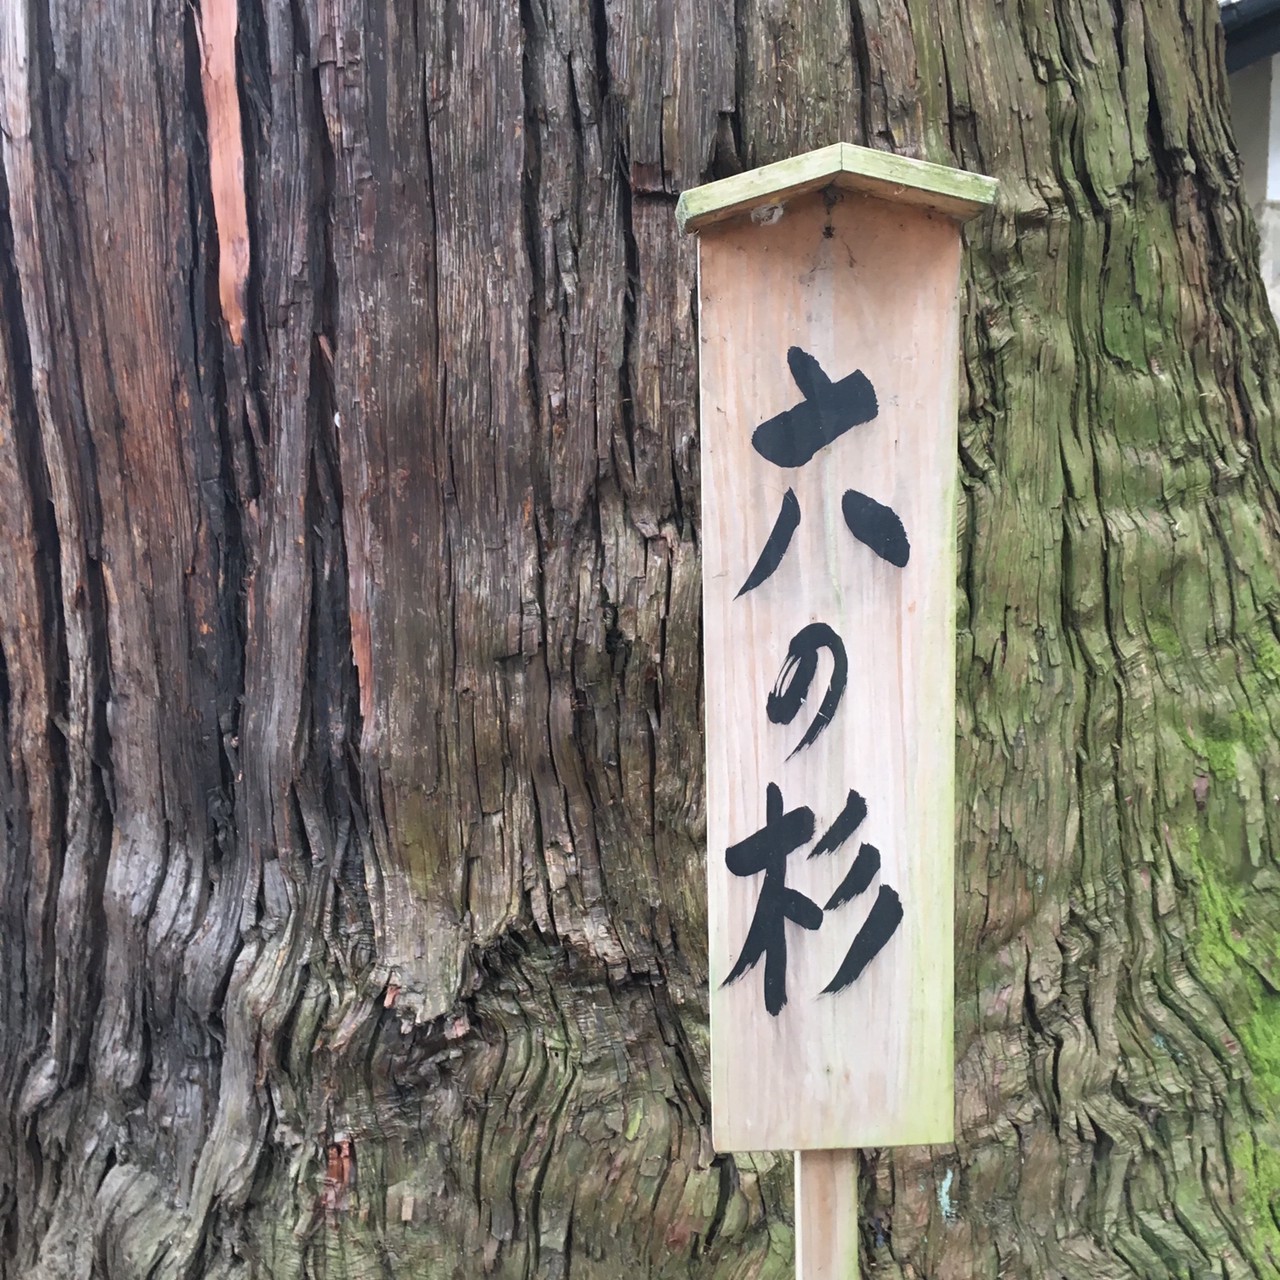 六の杉